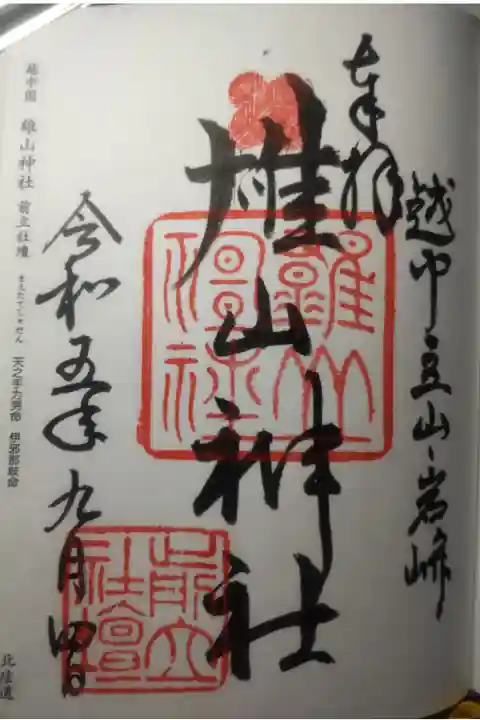 奉拝
越中立山 岩峅
雄山神社
令和五年九月四日
越中国 雄山神社 前立社壇 天之手力男命 伊邪那岐命
まえたてしゃだん
前立社壇
北陸道